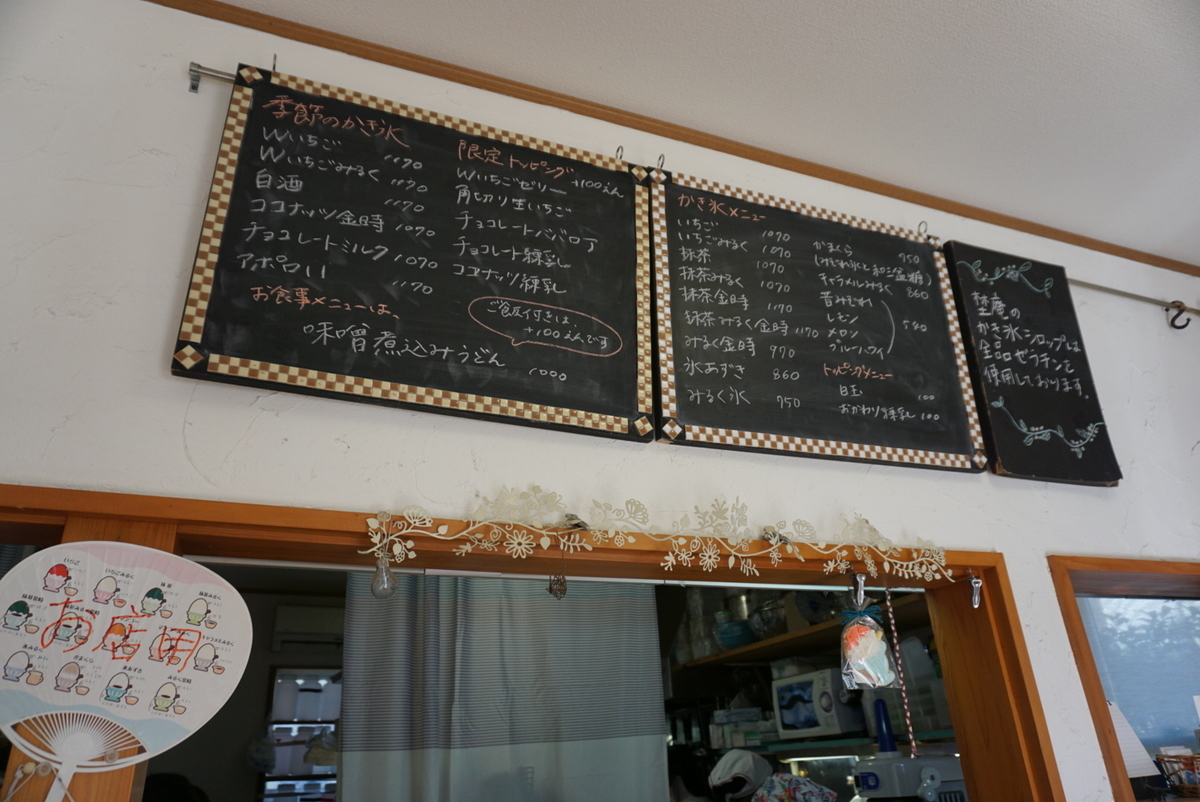 季節のかき氷
Wいちご 1170
Wいちごみるく 1170
白酒 1170
ココナッツ金時 1070
チョコレートミルク 1070
アポロ!! 1170
お食事メニューは、
味噌煮込みうどん 1000
限定トッピング +100えん
Wいちごゼリー
角切り生いちご
チョコレートババロア
チョコレート練乳
ココナッツ練乳
ご飯付きは、
+100えんです
かき氷メニュー
いちご 1070
いちごみるく 1070
抹茶 1070
抹茶みるく 1070
抹茶金時 1170
抹茶みるく金時 1170
みるく金時 970
氷あずき 860
みるく氷 750
かまくら 750
和三盆糖)
キャラメルみるく 860
昔みぞれ
レモン
メロン
ブルーハワイ
540
トッピングメニュー
白玉 100
おかわり練乳 100
埜庵の
かき氷シロップは
全品ゼラチンを
使用しております。
お店用
いちご
いちごみるく
抹茶